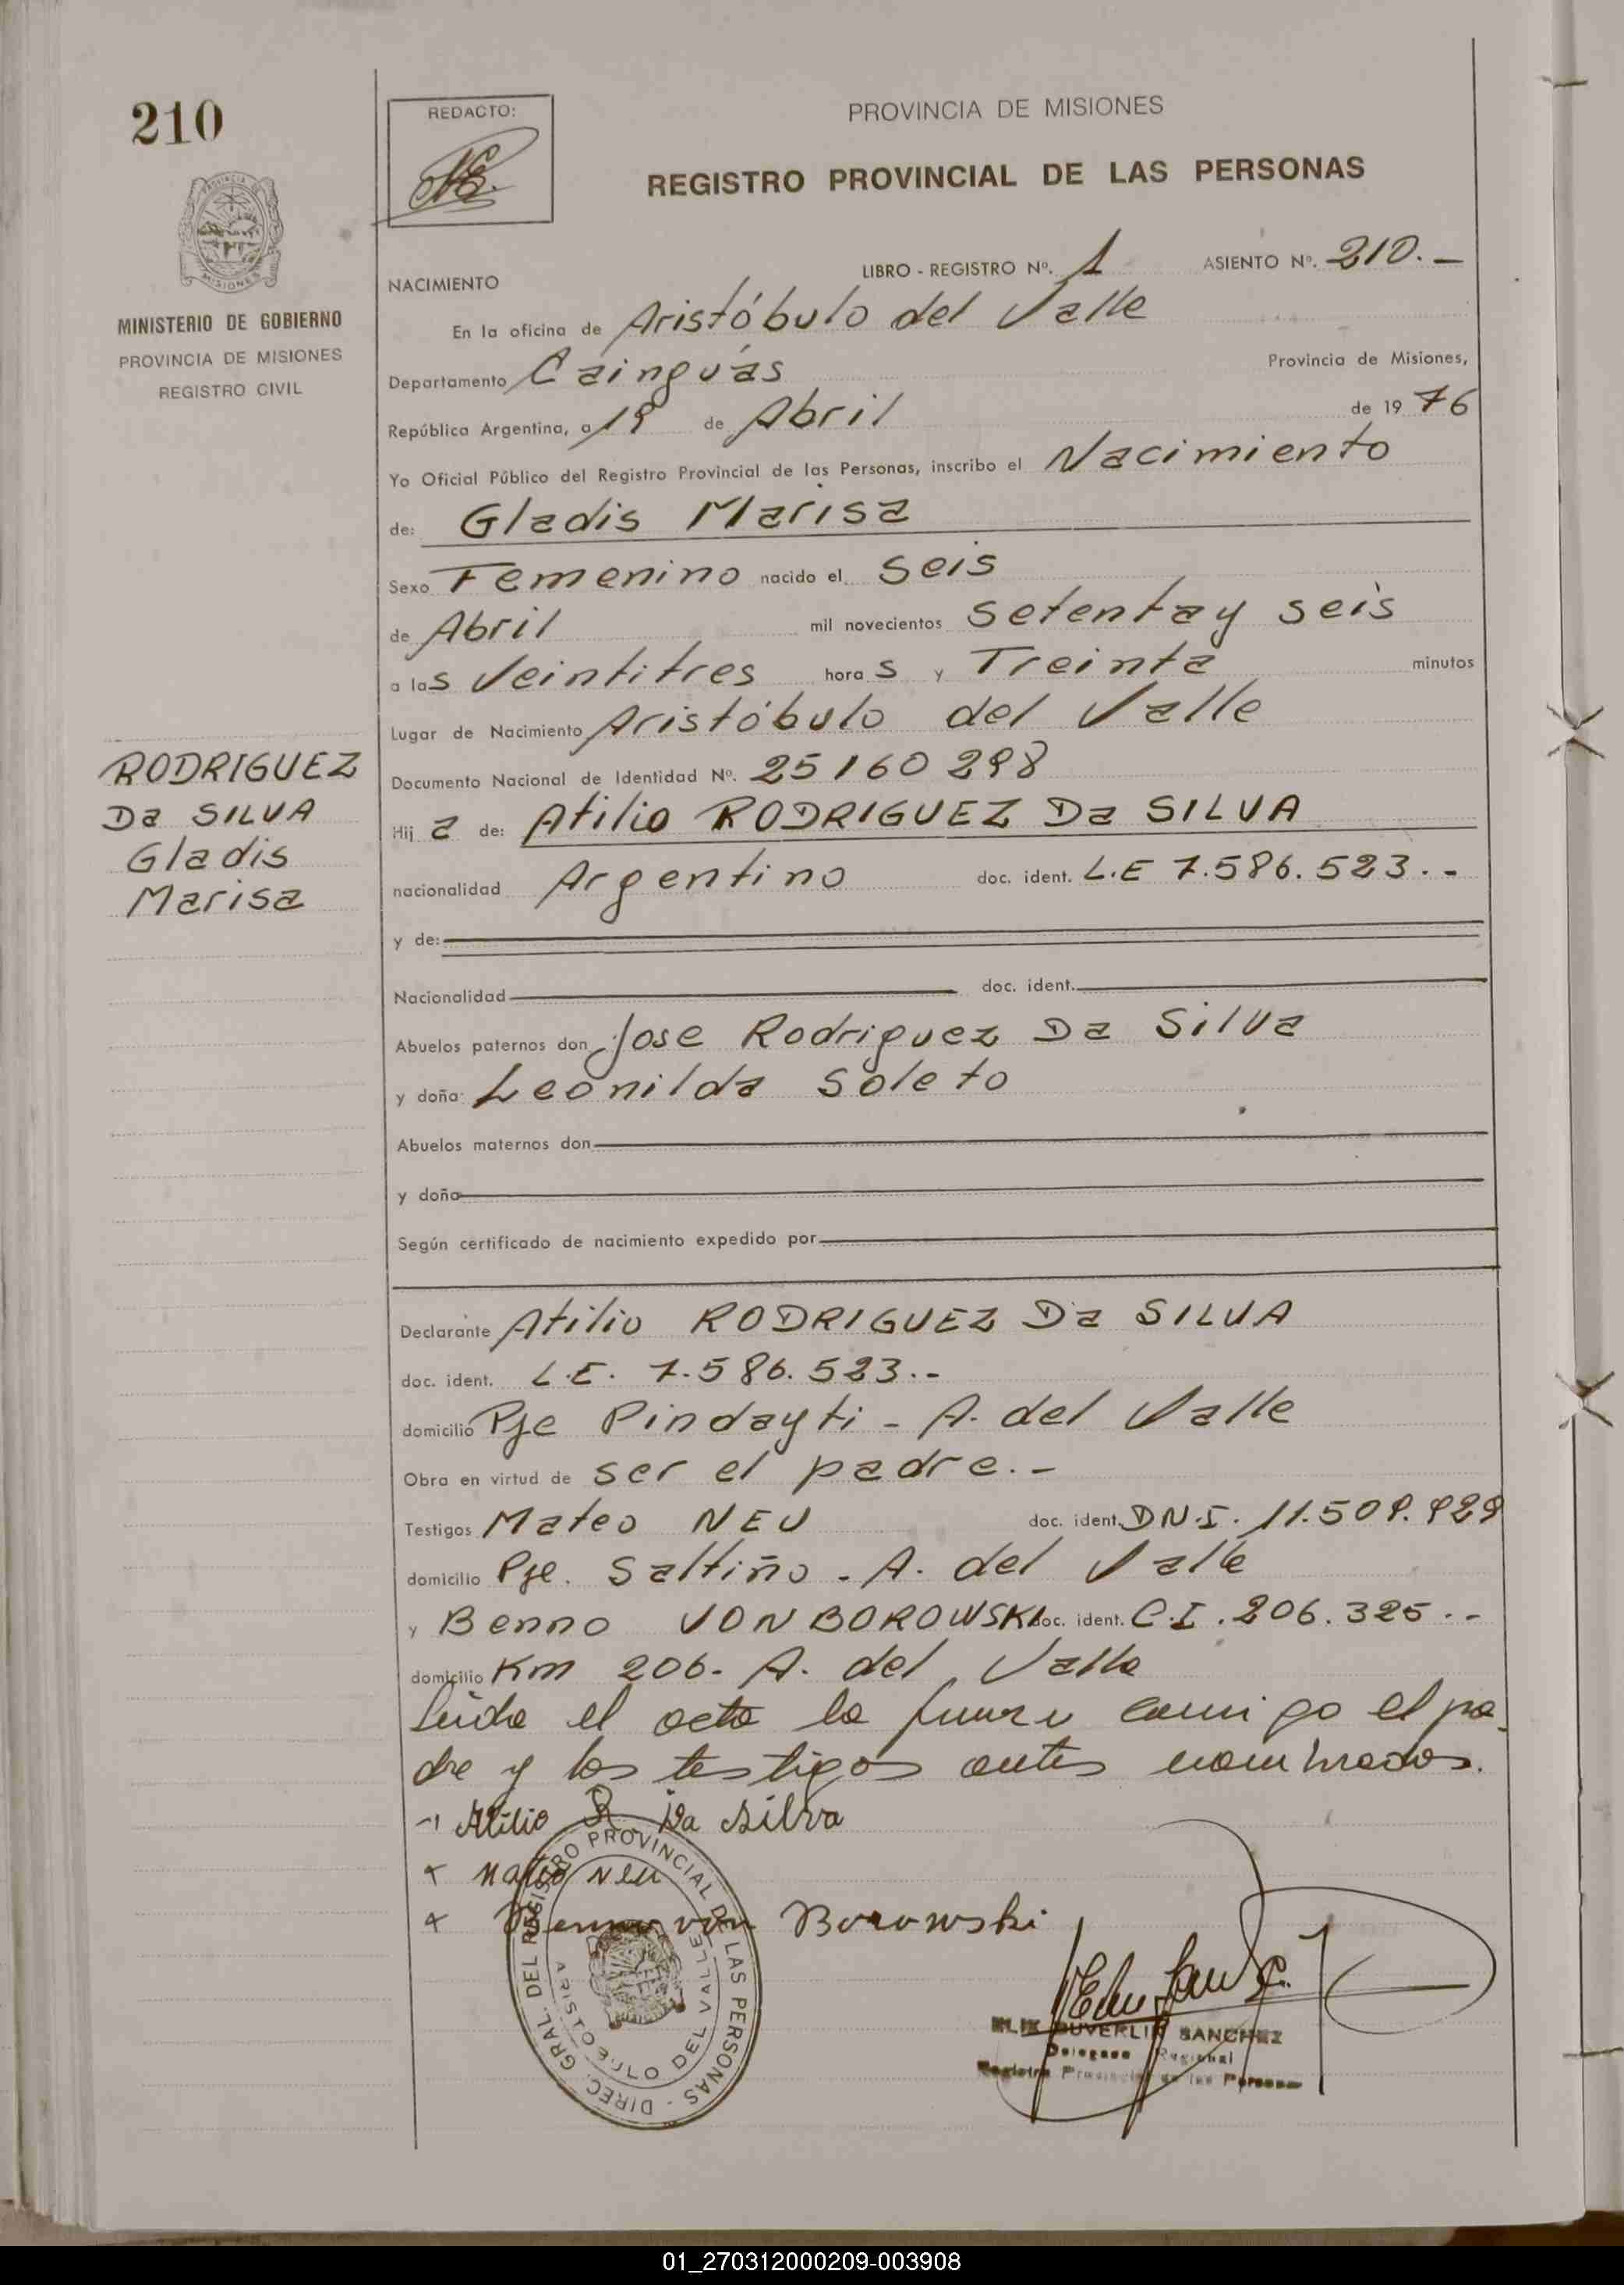 210
REDACTO:
PROVINCIA DE MISIONES
REGISTRO PROVINCIAL DE LAS PERSONAS
MINISTERIO DE GOBIERNO
PROVINCIA DE MISIONES
REGISTRO CIVIL
LIBRO - REGISTRO Nº. 1 ASIENTO Nº. 210.-
NACIMIENTO
En la oficina de Aristóbulo del Valle
Departamento Cainguás Provincia de Misiones,
República Argentina, a 19 de Abril de 1976
Yo Oficial Público del Registro Provincial de las Personas, inscribo el Nacimiento
de: Gladis Marisa
Sexo Femenino nacido el seis
de Abril mil novecientos setenta y seis
a las Veintitres horas y Treinta minutos
Lugar de Nacimiento Aristóbulo del Valle
Documento Nacional de Identidad Nº. 25160298
RODRIGUEZ
Da SILVA
Gladis
Marisa
Hija de: Atilio RODRIGUEZ Da SILVA
nacionalidad Argentino doc. ident. L.E 7.586.523.-
y de:
Nacionalidad doc. ident.
Abuelos paternos don Jose Rodriguez Da Silva
y doña Leonilda Soleto
Abuelos maternos don
y doña
Según certificado de nacimiento expedido por
Declarante Atilio RODRIGUEZ Da SILVA
doc. ident. L.E. 7.586.523.-
domicilio Pje Pindayti - A. del Valle
Obra en virtud de ser el padre.-
Testigos Mateo NEU doc. ident. D.N.I. 11.509.929
domicilio Pje. Saltiño - A. del Valle
y Benno VON BOROWSKI doc. ident. C.I. 206.325.-
domicilio Km 206- A. del Valle
Leida el acta la firman conmigo el pa-
dre y los testigos antes nombrados.
Atilio R Da Silva
Mateo Neu
Benno von Borowski
DIREC. GRAL. DEL REGISTRO PROVINCIAL DE LAS PERSONAS -
ARISTOBULO DEL VALLE
SANCHEZ
Delegado Regional
Registro Provincial de las Personas
01_270312000209-003908